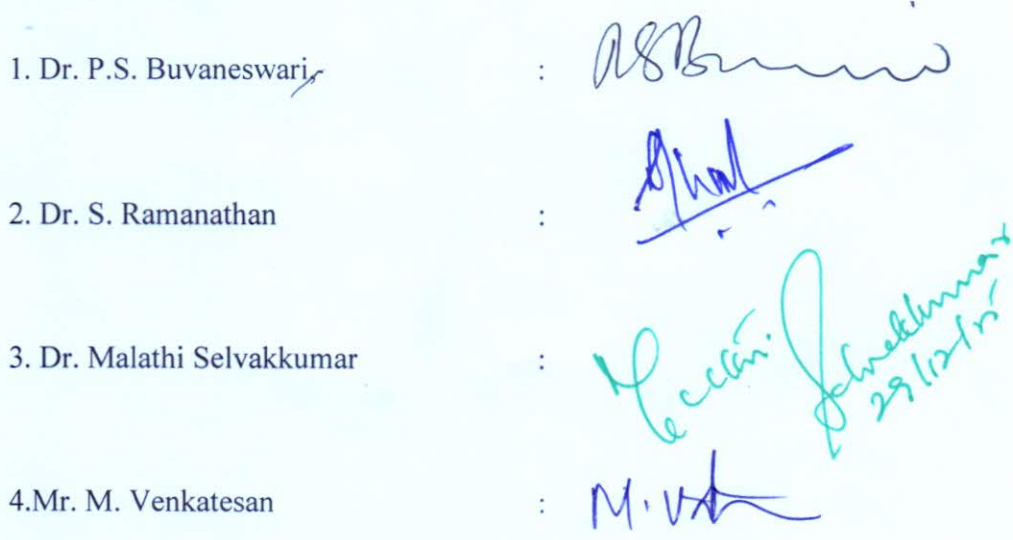 1. Dr. P.S. Buvaneswari :
2. Dr. S. Ramanathan :
3. Dr. Malathi Selvakkumar : Selvakkumar
29/12/15
4.Mr. M. Venkatesan : M.